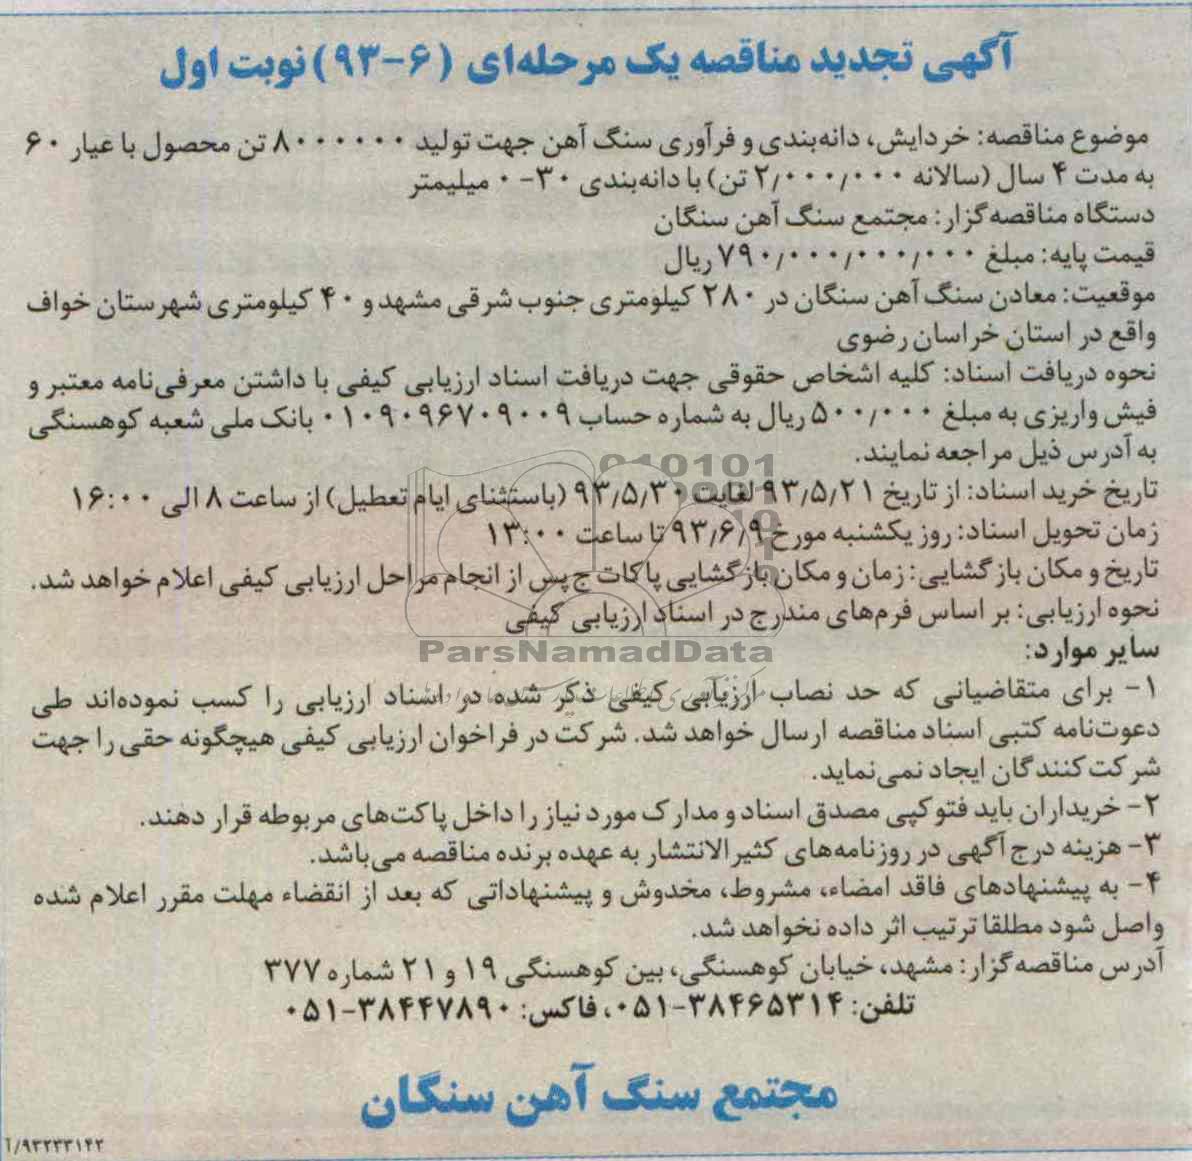 آگهی تجدید مناقصه یک مرحله‌ای (۶-۹۳) نوبت اول
موضوع مناقصه: خردایش، دانه‌بندی و فرآوری سنگ آهن جهت تولید ۸۰۰۰۰۰۰ تن محصول با عیار ۶۰
به مدت ۴ سال (سالانه ۲٫۰۰۰٫۰۰۰ تن) با دانه‌بندی ۳۰-۰ میلیمتر
دستگاه مناقصه‌گزار: مجتمع سنگ آهن سنگان
قیمت پایه: مبلغ ۷۹۰٫۰۰۰٫۰۰۰٫۰۰۰ ریال
موقعیت: معادن سنگ آهن سنگان در ۲۸۰ کیلومتری جنوب شرقی مشهد و ۴۰ کیلومتری شهرستان خواف
واقع در استان خراسان رضوی
نحوه دریافت اسناد: کلیه اشخاص حقوقی جهت دریافت اسناد ارزیابی کیفی با داشتن معرفی‌نامه معتبر و
فیش واریزی به مبلغ ۵۰۰٫۰۰۰ ریال به شماره حساب ۰۱۰۹۰۹۶۷۰۹۰۰۹ بانک ملی شعبه کوهسنگی
به آدرس ذیل مراجعه نمایند.
تاریخ خرید اسناد: از تاریخ ۹۳٫۵٫۲۱ لغایت ۹۳٫۵٫۳۰ (باستثنای ایام تعطیل) از ساعت ۸ الی ۱۶:۰۰
زمان تحویل اسناد: روز یکشنبه مورخ ۹۳٫۶٫۹ تا ساعت ۱۳:۰۰
تاریخ و مکان بازگشایی: زمان و مکان بازگشایی پاکات ج پس از انجام مراحل ارزیابی کیفی اعلام خواهد شد.
نحوه ارزیابی: بر اساس فرم‌های مندرج در اسناد ارزیابی کیفی
ParsNamadData
سایر موارد:
۱- برای متقاضیانی که حد نصاب ارزیابی کیفی ذکر شده در اسناد ارزیابی را کسب نموده‌اند طی
دعوت‌نامه کتبی اسناد مناقصه ارسال خواهد شد. شرکت در فراخوان ارزیابی کیفی هیچگونه حقی را جهت
شرکت‌کنندگان ایجاد نمی‌نماید.
۲- خریداران باید فتوکپی مصدق اسناد و مدارک مورد نیاز را داخل پاکت‌های مربوطه قرار دهند.
۳- هزینه درج آگهی در روزنامه‌های کثیرالانتشار به عهده برنده مناقصه می‌باشد.
۴- به پیشنهادهای فاقد امضاء، مشروط، مخدوش و پیشنهاداتی که بعد از انقضاء مهلت مقرر اعلام شده
واصل شود مطلقا ترتیب اثر داده نخواهد شد.
آدرس مناقصه‌گزار: مشهد، خیابان کوهسنگی، بین کوهسنگی ۱۹ و ۲۱ شماره ۳۷۷
تلفن: ۳۸۴۶۵۳۱۴-۰۵۱، فاکس: ۳۸۴۴۷۸۹۰-۰۵۱
مجتمع سنگ آهن سنگان
۹۳۲۳۳۱۴۲/آ